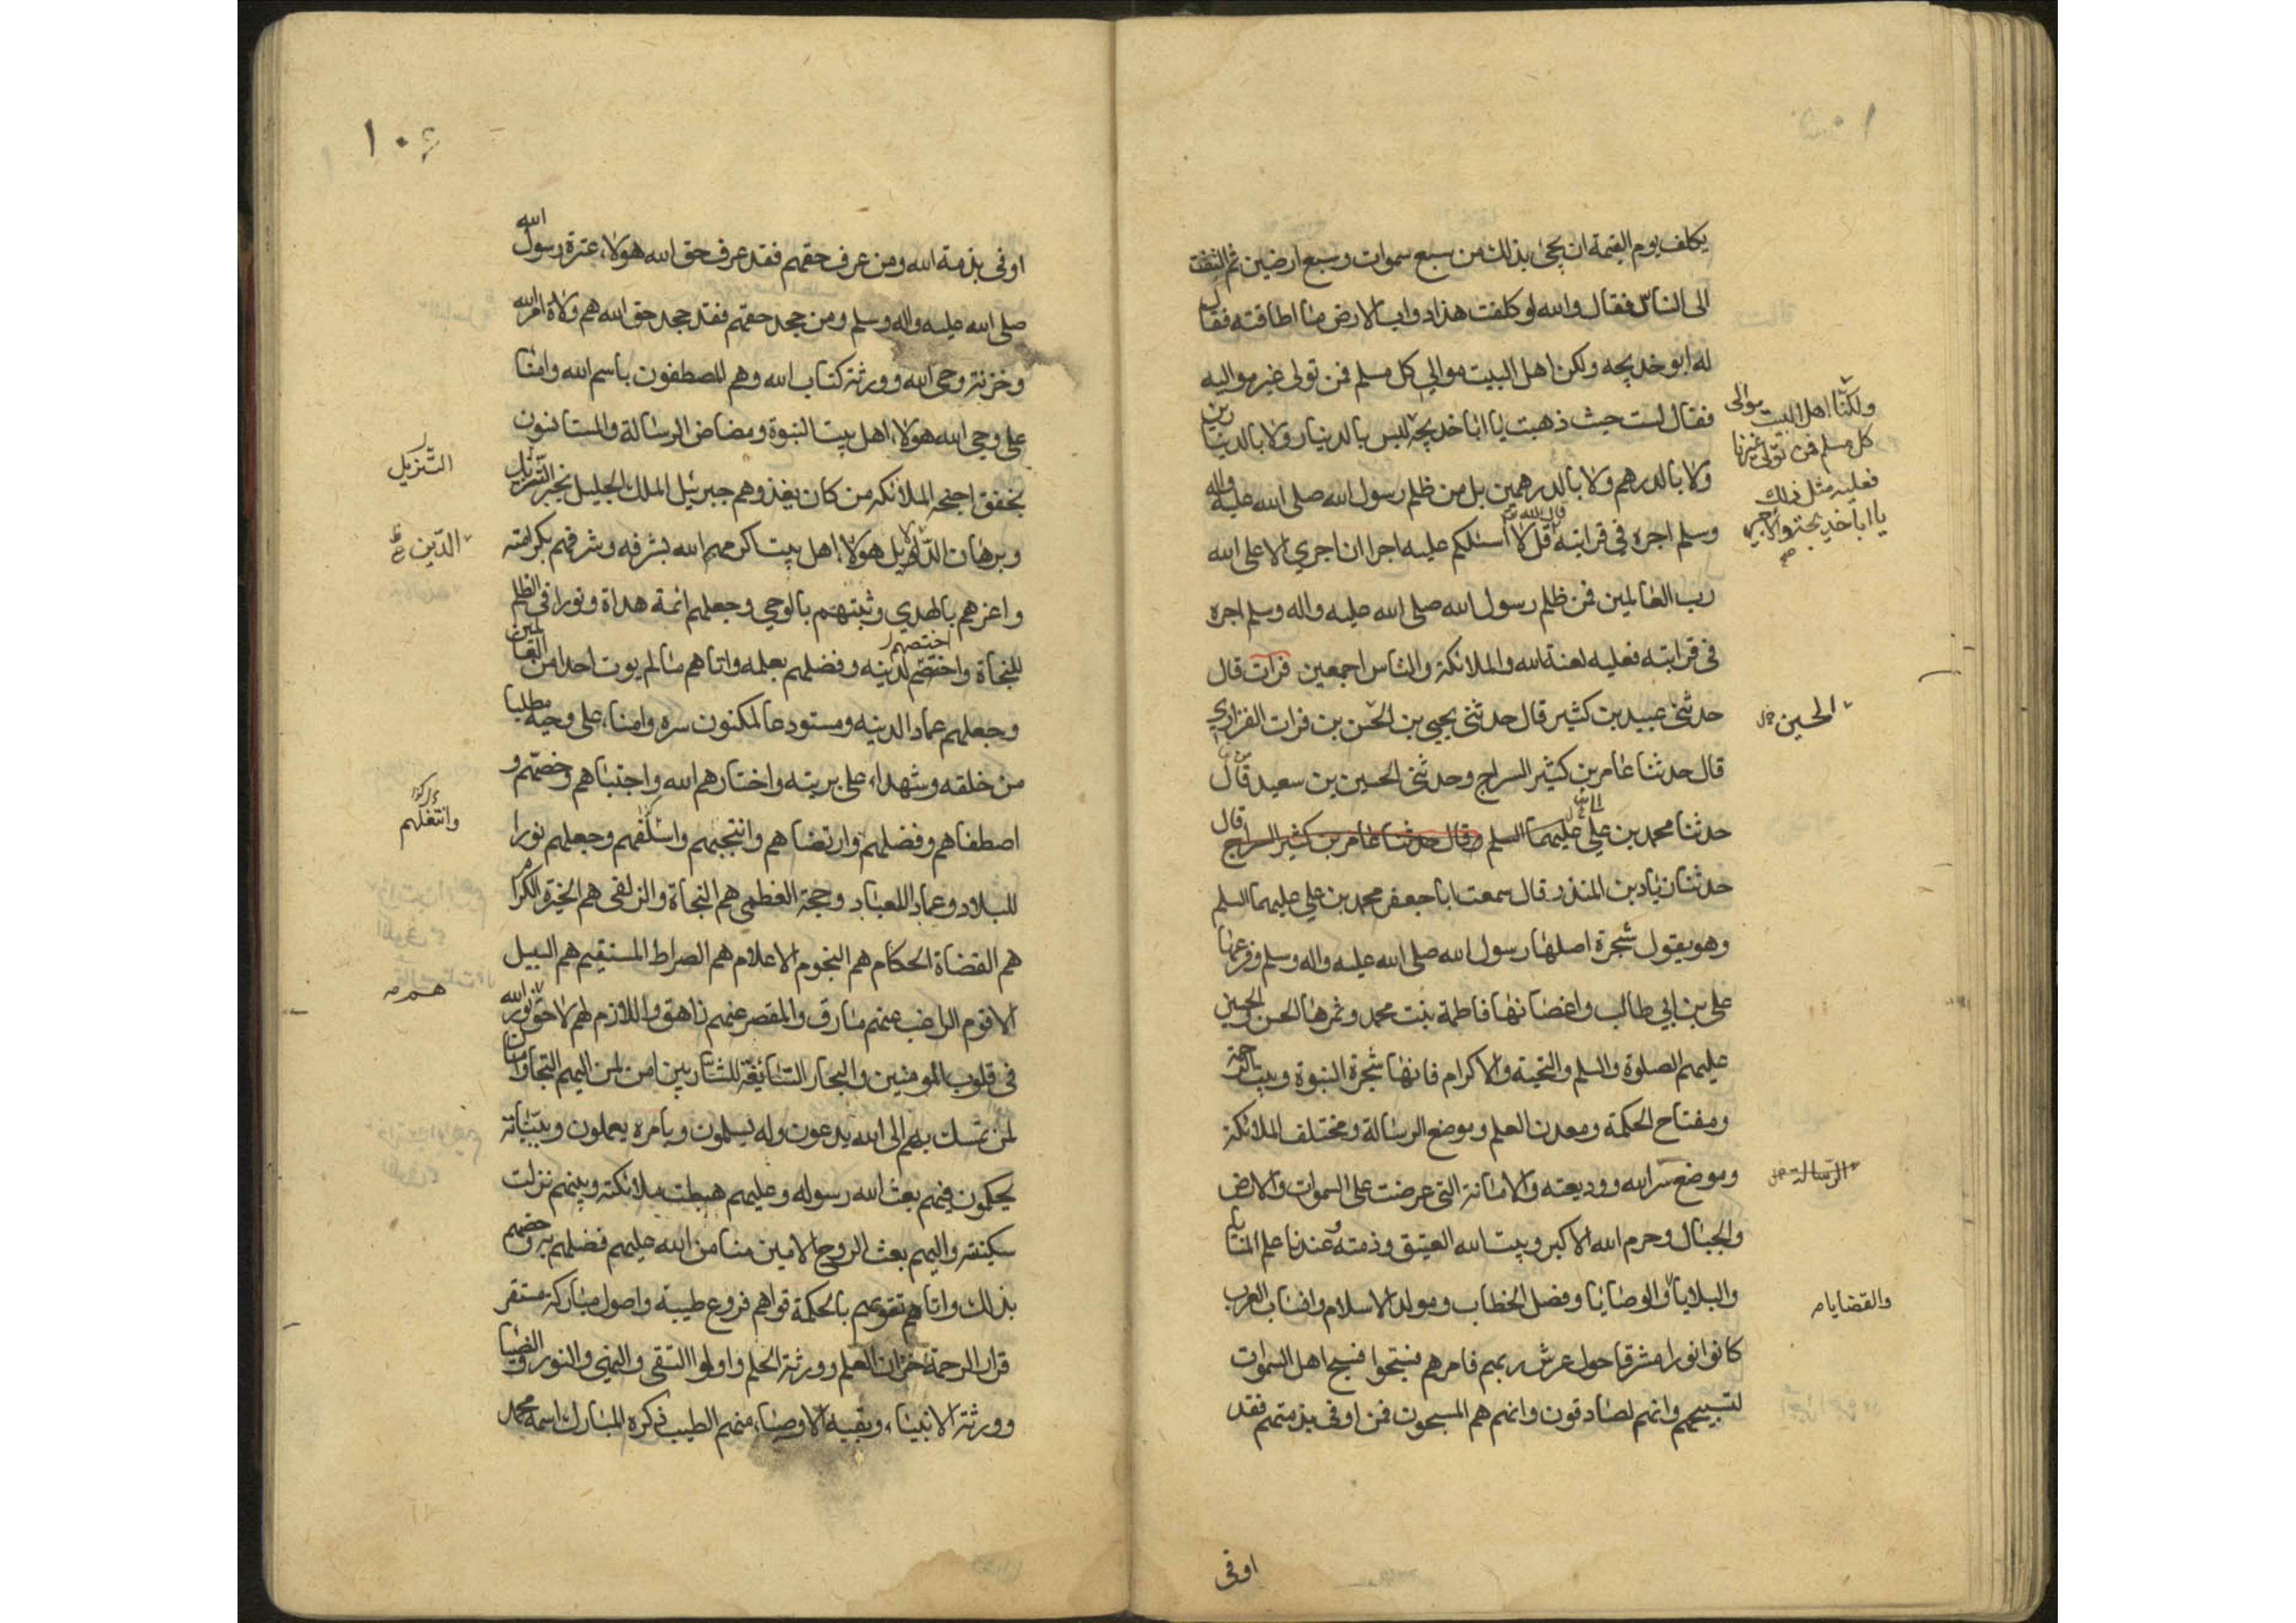 يكلف يوم القيمة ان يجئ بذلك من سبع سموات وسبع ارضين ثم التفت
الى الناس فقال والله لو كلفت هذا دواب الارض ما اطاقته فقال
له ابو خديجه ولكن اهل البيت موالي كل مسلم فمن تولى غير مواليه
فقال لست حيث ذهبت يا ابا خديجة ليس بالدينار ولا بالدينارين
ولا بالدرهم ولا بالدرهمين بل من ظلم رسول الله صلى الله عليه واله
وسلم اجره في قرابته قال الله قل لا اسئلكم عليه اجرا ان اجري الا على الله
رب العالمين فمن ظلم رسول الله صلى الله عليه واله وسلم اجره
في قرابته فعليه لعنة الله والملائكة والناس اجمعين فرات قال
حدثنى عبيد بن كثير قال حدثنى يحيى بن الحسن بن فرات الفزاري
قال حدثنا عامر بن كثير السراج وحدثنى الحسين بن سعيد قال
حدثنا محمد بن علي عليهما السلم وقال حدثنا عامر بن كثير السراج قال
حدثنا زياد بن المنذر قال سمعت ابا جعفر محمد بن علي عليهما السلم
وهو يقول شجرة اصلها رسول الله صلى الله عليه واله وسلم وفرعها
على بن ابي طالب واغصانها فاطمة بنت محمد وثمرها الحسن والحسين
عليهم الصلوة والسلم والتحية والاكرام فانها شجرة النبوة وبيت الرحمة
ومفتاح الحكمة ومعدن العلم وموضع الرسالة ومختلف الملائكة
وموضع سر الله ووديعته والامانة التي عرضت على السموات والارض
والجبال وحرم الله الاكبر وبيت الله العتيق وذمته وعندنا علم المنايا
والبلايا والوصايا وفصل الخطاب ومولد الاسلام وانساب العرب
كانوا نورا مشرقا حول عرش ربهم فامرهم فسبحوا فسبح اهل السموات
لتسبيحهم وانهم لصادقون وانهم هم المسبحون فمن اوفى بذمتهم فقد
اوفى
ولكنا اهل البيت موالى
كل مسلم فمن تولى غيرنا
فعليه مثل ذلك
يا ابا خديجة والاجير
الحسين
الرسالة
والقضايا
اوفى بذمة الله ومن عرف حقهم فقد عرف حق الله هولاء عترة رسول الله
صلى الله عليه واله وسلم ومن جحد حقهم فقد جحد حق الله هم ولاة امر الله
وخزنة وحي الله وورثة كتاب الله وهم المصطفون باسم الله وامنا
على وحي الله هولاء اهل بيت النبوة ومضاض الرسالة والمستانسون
بخفق اجنحة الملائكة من كان يغذوهم جبرئيل الملك الجليل بخبر التنزيل
وبرهان الدلايل هولاء اهل بيت اكرمهم الله بشرفه وشرفهم بكرامته
واعزهم بالهدي وثبتهم بالوحي وجعلهم ائمة هداة ونورا في الظلم
للنجاة واختصهم لدينه وفضلهم بعلمه واتاهم ما لم يوت احدا من العالمين
وجعلهم عمادا لدينه ومستودعا لمكنون سره وامناء على وحيه
من خلقه وشهداء على بريته واختارهم الله واجتباهم وخصهم و
اصطفاهم وفضلهم وارتضاهم وانتجبهم وجعلهم نورا
للبلاد وعمادا للعباد وحجة العظمى هم النجاة والزلفى هم الخيرة الكرام
هم القضاة الحكام هم النجوم الاعلام هم الصراط المستقيم هم السبيل
الاقوم الراغب عنهم مارق والمقصر عنهم زاهق واللازم لهم لاحق نور الله
في قلوب المومنين والبحار السائغة للشاربين امن لمن اليهم التجا وامان
لمن تمسك بهم الى الله يدعون وله يسلمون وبامره يعملون وببيناته
يحكمون فيهم بعث الله رسوله وعليهم هبطت ملائكته وبينهم نزلت
سكينته واليهم بعث الروح الامين منا من الله عليهم فضلهم به وخصهم
بذلك واتاهم تقويهم بالحكمة قواهم فروع طيبة واصول مباركة مستقر
قرار الرحمة خزان العلم وورثة الحلم واولوا التقى والنهى والنور والضيا
وورثة الانبياء وبقية الاوصياء منهم الطيب ذكره المبارك اسمه محمد
التنزيل
الدين
وانتغلهم
هم